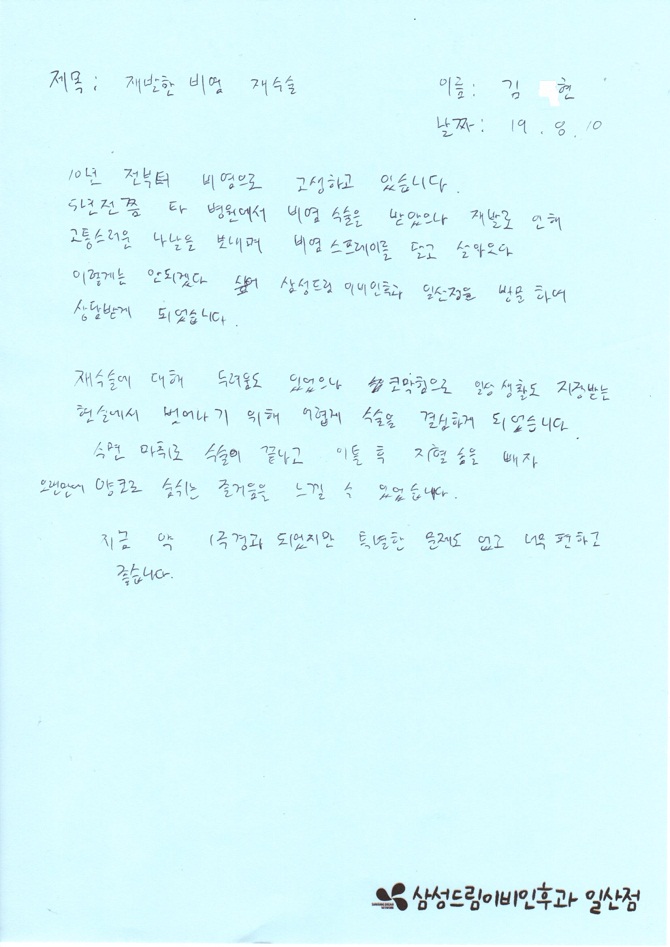 제목: 재발한 비염 재수술
이름: 김 현
날짜: 19. 8. 10
10년 전부터 비염으로 고생하고 있습니다.
5년전쯤 타 병원에서 비염 수술을 받았으나 재발로 인해
고통스러운 나날을 보내며 비염 스프레이를 달고 살아오다
이렇게는 안되겠다 싶어 삼성드림이비인후과 일산점을 방문하여
상담받게 되었습니다.
재수술에 대해 두려움도 있었으나 코막힘으로 일상생활도 지장받는
현실에서 벗어나기 위해 어렵게 수술을 결심하게 되었습니다
수면 마취로 수술이 끝나고 이틀 후 지혈 솜을 빼자
오랜만에 양코로 숨쉬는 즐거움을 느낄 수 있었습니다.
지금 약 1주경과 되었지만 특별한 문제도 없고 너무 편하고
좋습니다.
삼성드림이비인후과 일산점